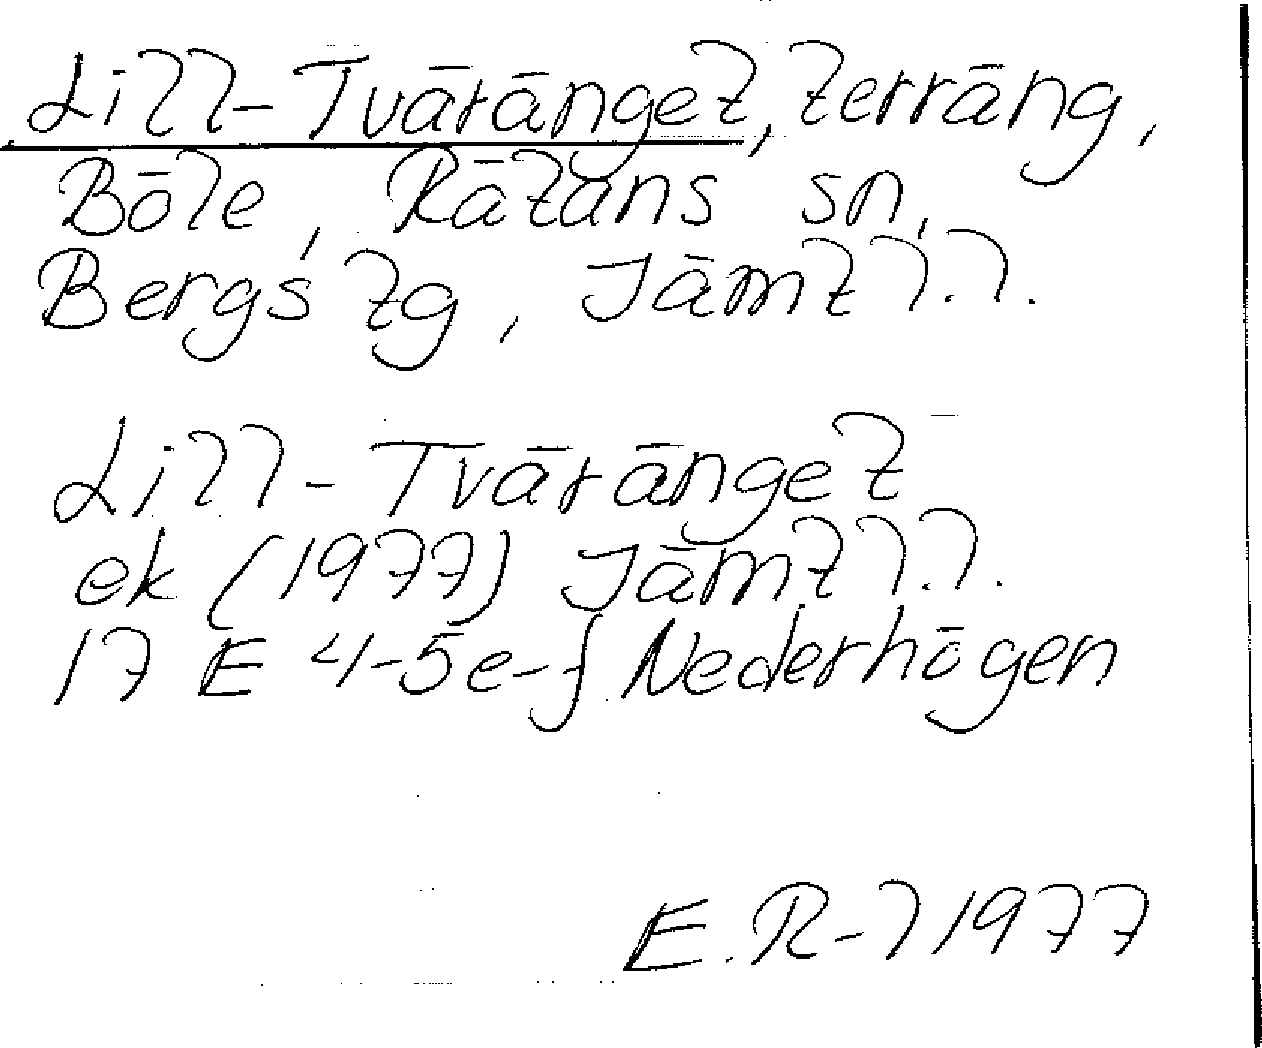 Lill-Tväränget, terräng,
Böle, Rätans sn,
Bergs tg, Jämtl.l.
Lill-Tväränget
ek (1977) Jämtl.l.
17 E 4-5e-f Nederhögen
E.R-l 1977